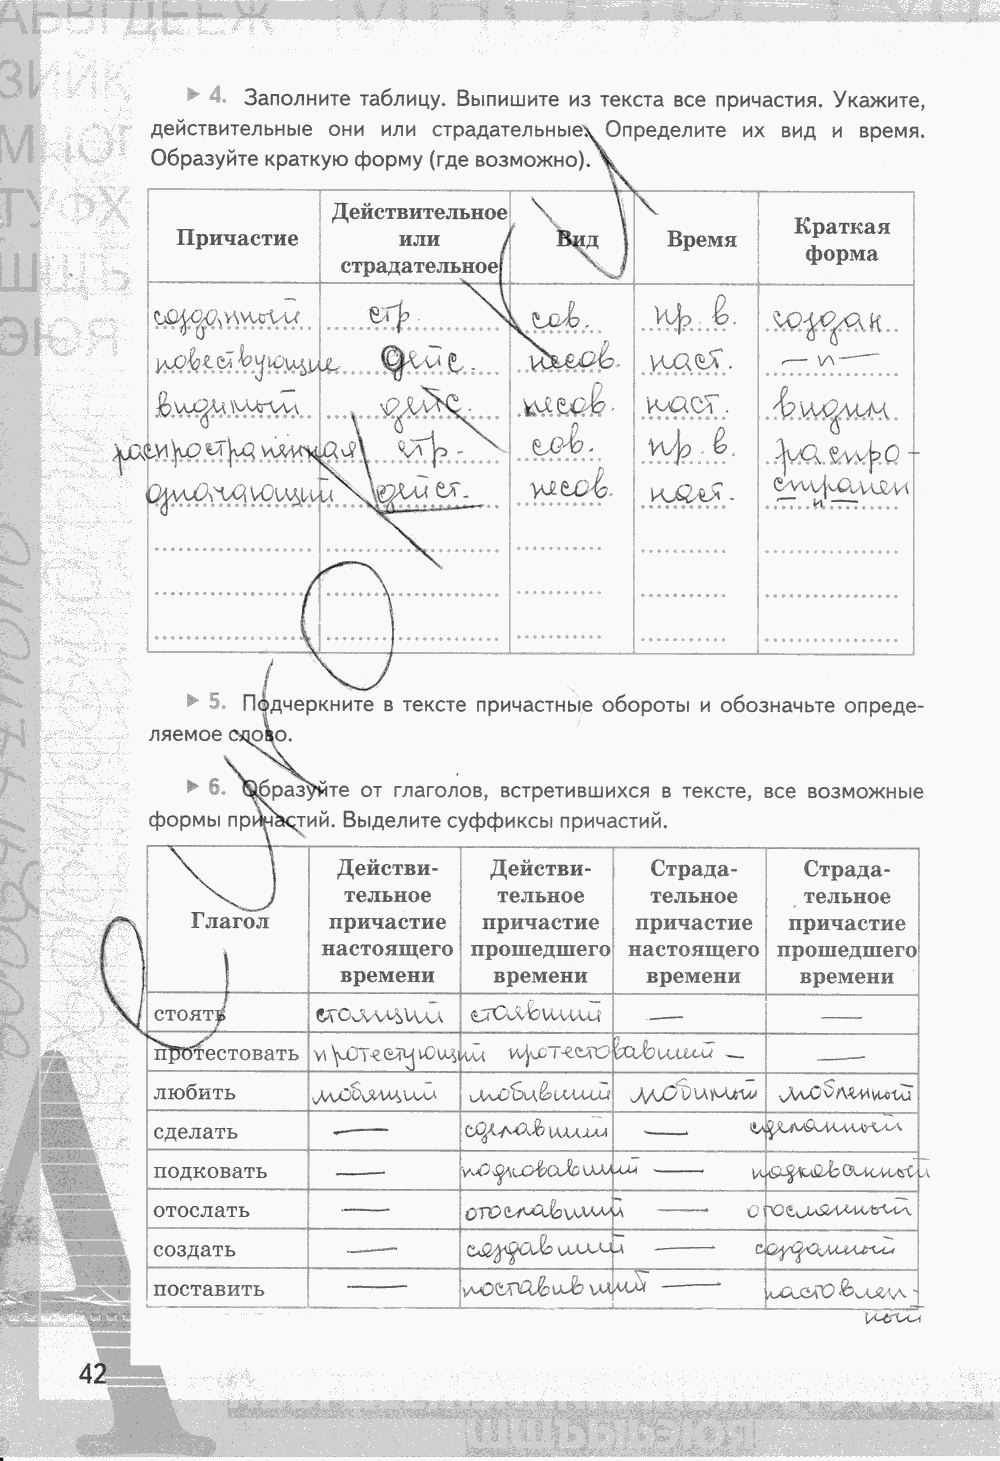 4. Заполните таблицу. Выпишите из текста все причастия. Укажите,
действительные они или страдательные. Определите их вид и время.
Образуйте краткую форму (где возможно).
Причастие Действительное или страдательное Вид Время Краткая форма
созданный стр. сов. пр. в. создан
повествующие дейс. несов. наст. — " —
видимый дейс. несов. наст. видим
распространённая стр. сов. пр. в. распро-
означающий дейст. несов. наст. странен
5. Подчеркните в тексте причастные обороты и обозначьте опреде-
ляемое слово.
6. Образуйте от глаголов, встретившихся в тексте, все возможные
формы причастий. Выделите суффиксы причастий.
Глагол Действи-тельное причастие настоящего времени Действи-тельное причастие прошедшего времени Страда-тельное причастие настоящего времени Страда-тельное причастие прошедшего времени
стоять стоящий стоявший — —
протестовать протестующий протестовавший — —
любить любящий любивший любимый любленный
сделать — сделавший — сделанный
подковать — подковавший — подкованный
отослать — отославший — отосланный
создать — создавший — созданный
поставить — поставивший — поставлен-
ный
42